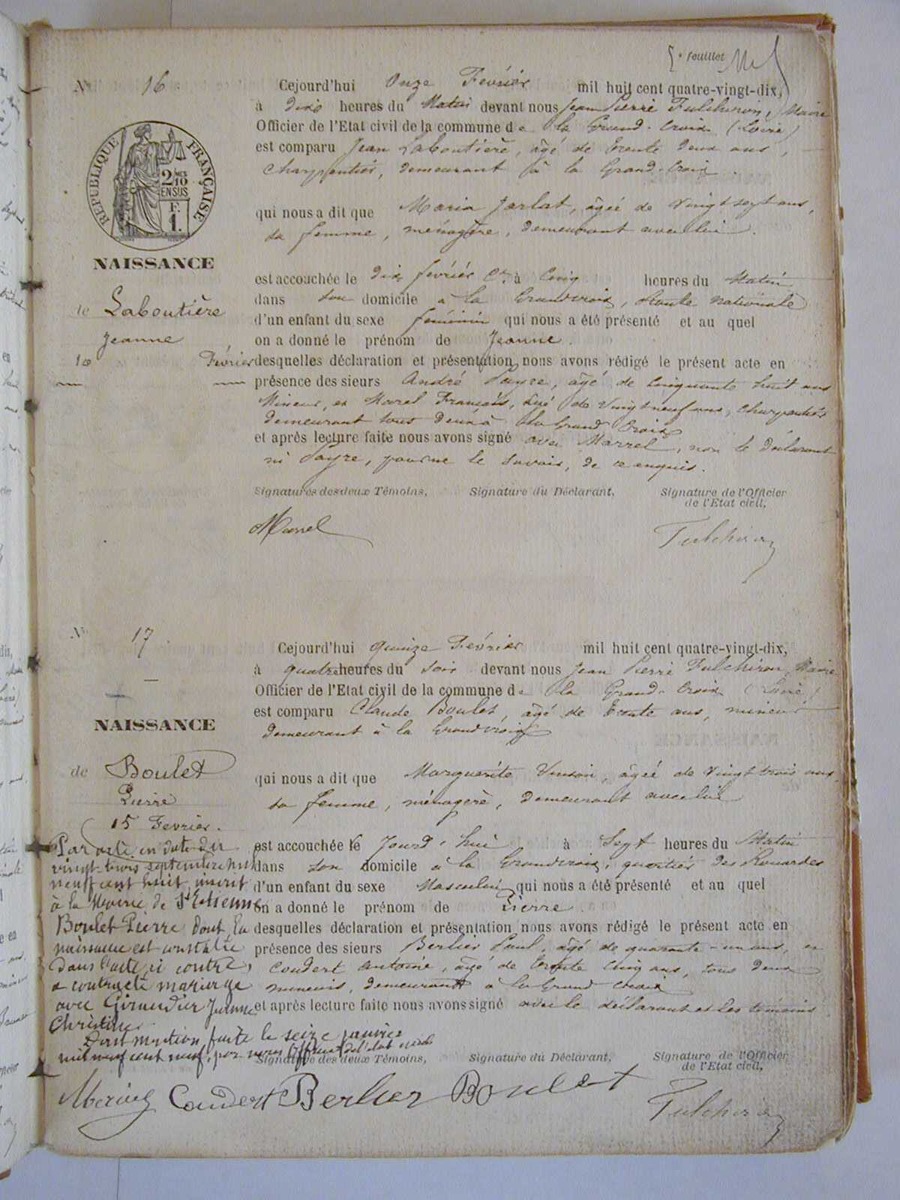 5e feuillet
N° 16
Cejourd'hui Onze Février mil huit cent quatre-vingt-dix,
à dix heures du Matin devant nous Jean Pierre Fulchiron, Maire
Officier de l'Etat civil de la commune de la Grand-Croix (Loire)
est comparu Jean Laboutière, âgé de trente deux ans,
charpentier, demeurant à la Grand-Croix.
qui nous a dit que Maria Jarlat, âgée de vingt sept ans,
sa femme, menagère, demeurant avec lui.
est accouchée le dix février Ct à Cinq heures du Matin
dans son domicile à la Grandcroix, Route nationale
d'un enfant du sexe féminin qui nous a été présenté et au quel
on a donné le prénom de Jeanne.
desquelles déclaration et présentation nous avons rédigé le présent acte en
présence des sieurs André Fayre, âgé de Cinquante huit ans
Mineur, et Marrel Français, âgé de vingt neuf ans, charpentier
demeurant tous deux à la Grand Croix
et après lecture faite nous avons signé avec Marrel, non le déclarant
ni Fayre, pour ne le savoir, de ce enquis.
Signatures des deux Témoins, Signature du Déclarant, Signature de l'Officier
de l'Etat civil,
Marrel Fulchiron
RÉPUBLIQUE FRANÇAISE
2/10 EN SUS
F. 1.
NAISSANCE
de Laboutière
Jeanne
10 Février
N° 17
Cejourd'hui quinze Février mil huit cent quatre-vingt-dix,
à quatre heures du soir devant nous Jean Pierre Fulchiron, Maire
Officier de l'Etat civil de la commune de la Grand-Croix (Loire)
est comparu Claude Boulet, âgé de trente ans, mineur
demeurant à la Grandcroix
qui nous a dit que Marguerite Vinson, âgée de vingt trois ans
sa femme, ménagère, demeurant avec lui
est accouchée le Jourd'hui à Sept heures du Matin
dans son domicile à la Grandcroix, quartier des Rouardes
d'un enfant du sexe Masculin qui nous a été présenté et au quel
on a donné le prénom de Pierre.
desquelles déclaration et présentation nous avons rédigé le présent acte en
présence des sieurs Berlier Paul, âgé de quarante-un ans, et
Coudert Antoine, âgé de trente cinq ans, tous deux
mineurs, demeurant à la Grand Croix
et après lecture faite nous avons signé avec le déclarant et les témoins
NAISSANCE
de Boulet
Pierre
15 Fevrier.
Par acte en date du
vingt-trois septembre mil
neuf cent huit, inscrit
à la Mairie de St Etienne
Boulet Pierre dont la
naissance est constatée
dans l'acte ci contre,
a contracté mariage
avec Giraudier Jeanne
Christine
Dont mention faite le seize janvier
mil neuf cent neuf, par nous officier de l'état civil
Signatures des deux Témoins, Signature du Déclarant, Signature de l'Officier
de l'Etat civil,
Coudert Berlier Boulet Fulchiron